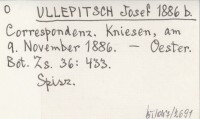 O ULLEPITSCH Josef 1886 b.
Correspondenz. Kniesen, am
9. November 1886. — Oester.
Bot. Zs. 36: 433.
Spisz.